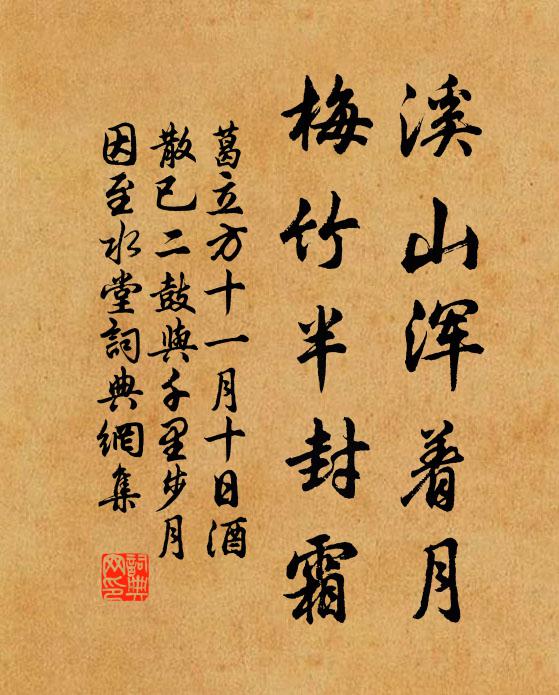 溪山浑着月
梅竹半封霜
葛立方十一月十日酒
散已二鼓與千里步月
因至水堂詞典網集
詞典网印